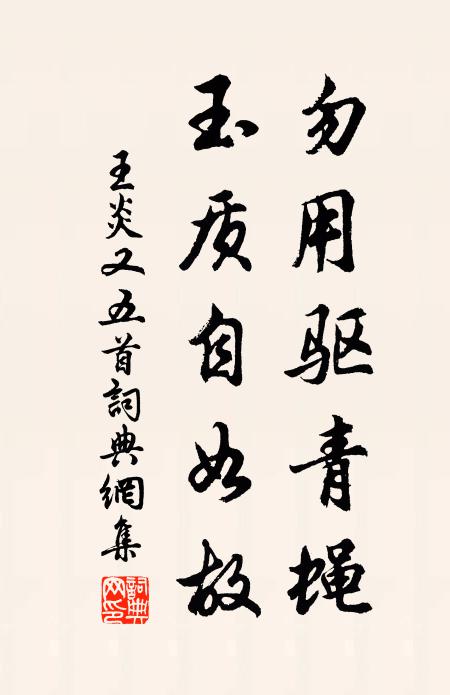 勿用驱青蝇
玉质自如故
王炎又五首詞典網集
詞典网印